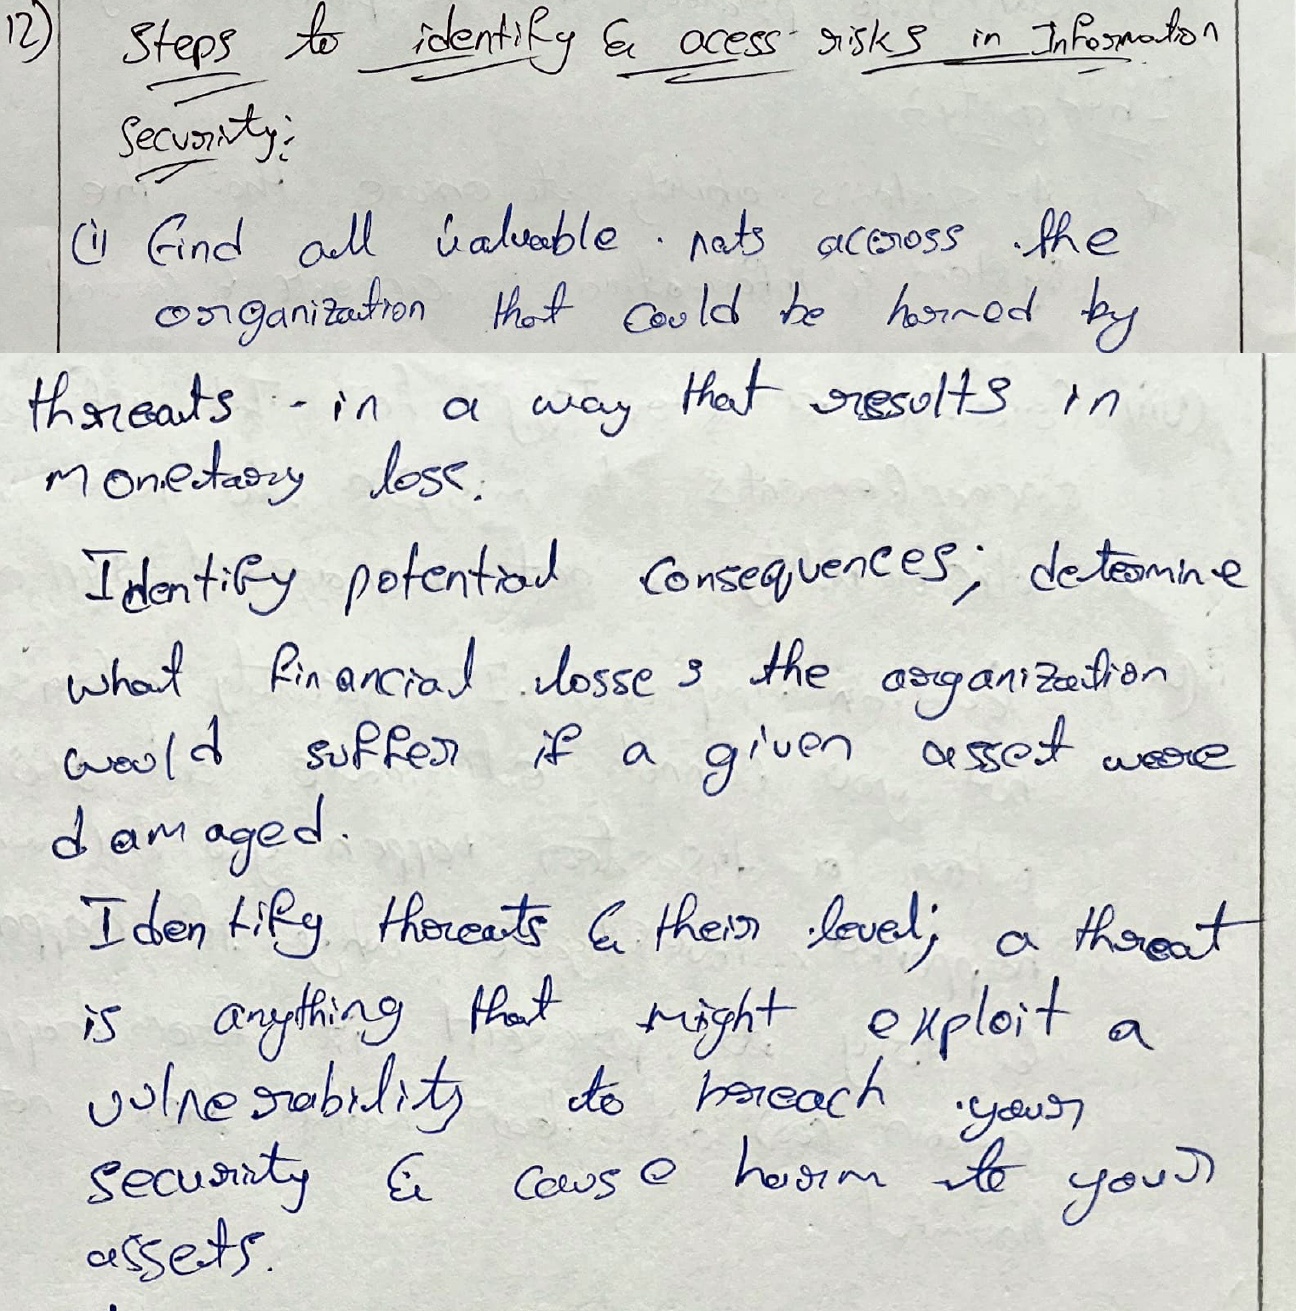 12) Steps to identify & acess risks in Information
Security:
(i) Find all valuable nats accross the
organization that could be harmed by
threats - in a way that results in
monetary loss.
Identify potential consequences; determine
what financial losses the organization
would suffer if a given asset were
damaged.
Identify threats & their level; a threat
is anything that might exploit a
vulnerability to breach your
security & cause harm to your
assets.